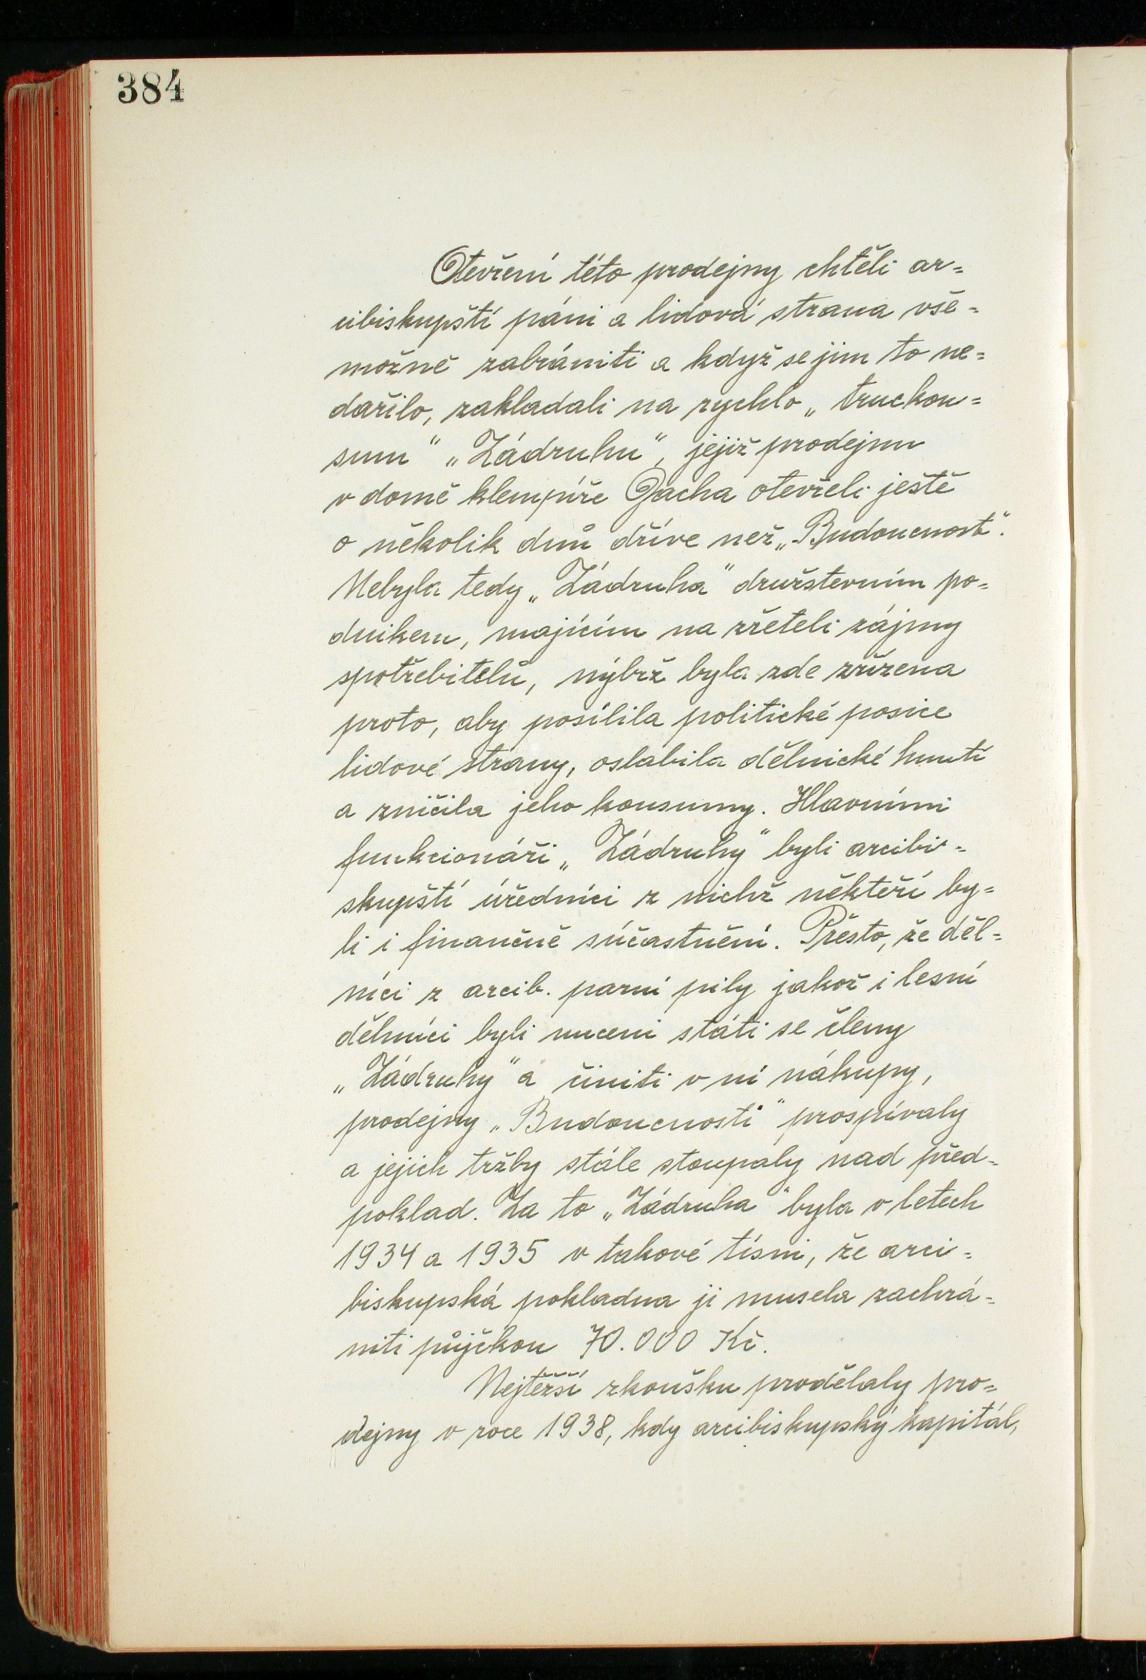 384
Otevření této prodejny chtěli ar=
cibiskupští páni a lidová strana vše=
možně zabrániti a když se jim to ne=
dařilo, zakladali na rychlo „truckon=
sum" „Zádruhu", jejíž prodejnu
v domě klempíře Gacha otevřeli ještě
o několik dnů dříve než „Budoucnost".
Nebyla tedy „Zádruha" družstevním po=
dnikem, majícím na zřeteli zájmy
spotřebitelů, nýbrž byla zde zřízena
proto, aby posílila politické posice
lidové strany, oslabila dělnické hnutí
a zničila jeho konsumy. Hlavními
funkcionáři „Zádruhy" byli arcibi=
skupští úředníci z nichž někteří by=
li i finančně súčastněni. Přesto, že děl=
níci z arcib. parní pily jakož i lesní
dělníci byli nuceni státi se členy
„Zádruhy" a činiti v ní nákupy,
prodejny „Budoucnosti" prospívaly
a jejich tržby stále stoupaly nad před=
poklad. Za to „Zádruha" byla v letech
1934 a 1935 v takové tísni, že arci=
biskupská pokladna ji musela zachrá=
niti půjčkou 70.000 Kč.
Nejtěžší zkoušku prodělaly pro=
dejny v roce 1938, kdy arcibiskupský kapitál,